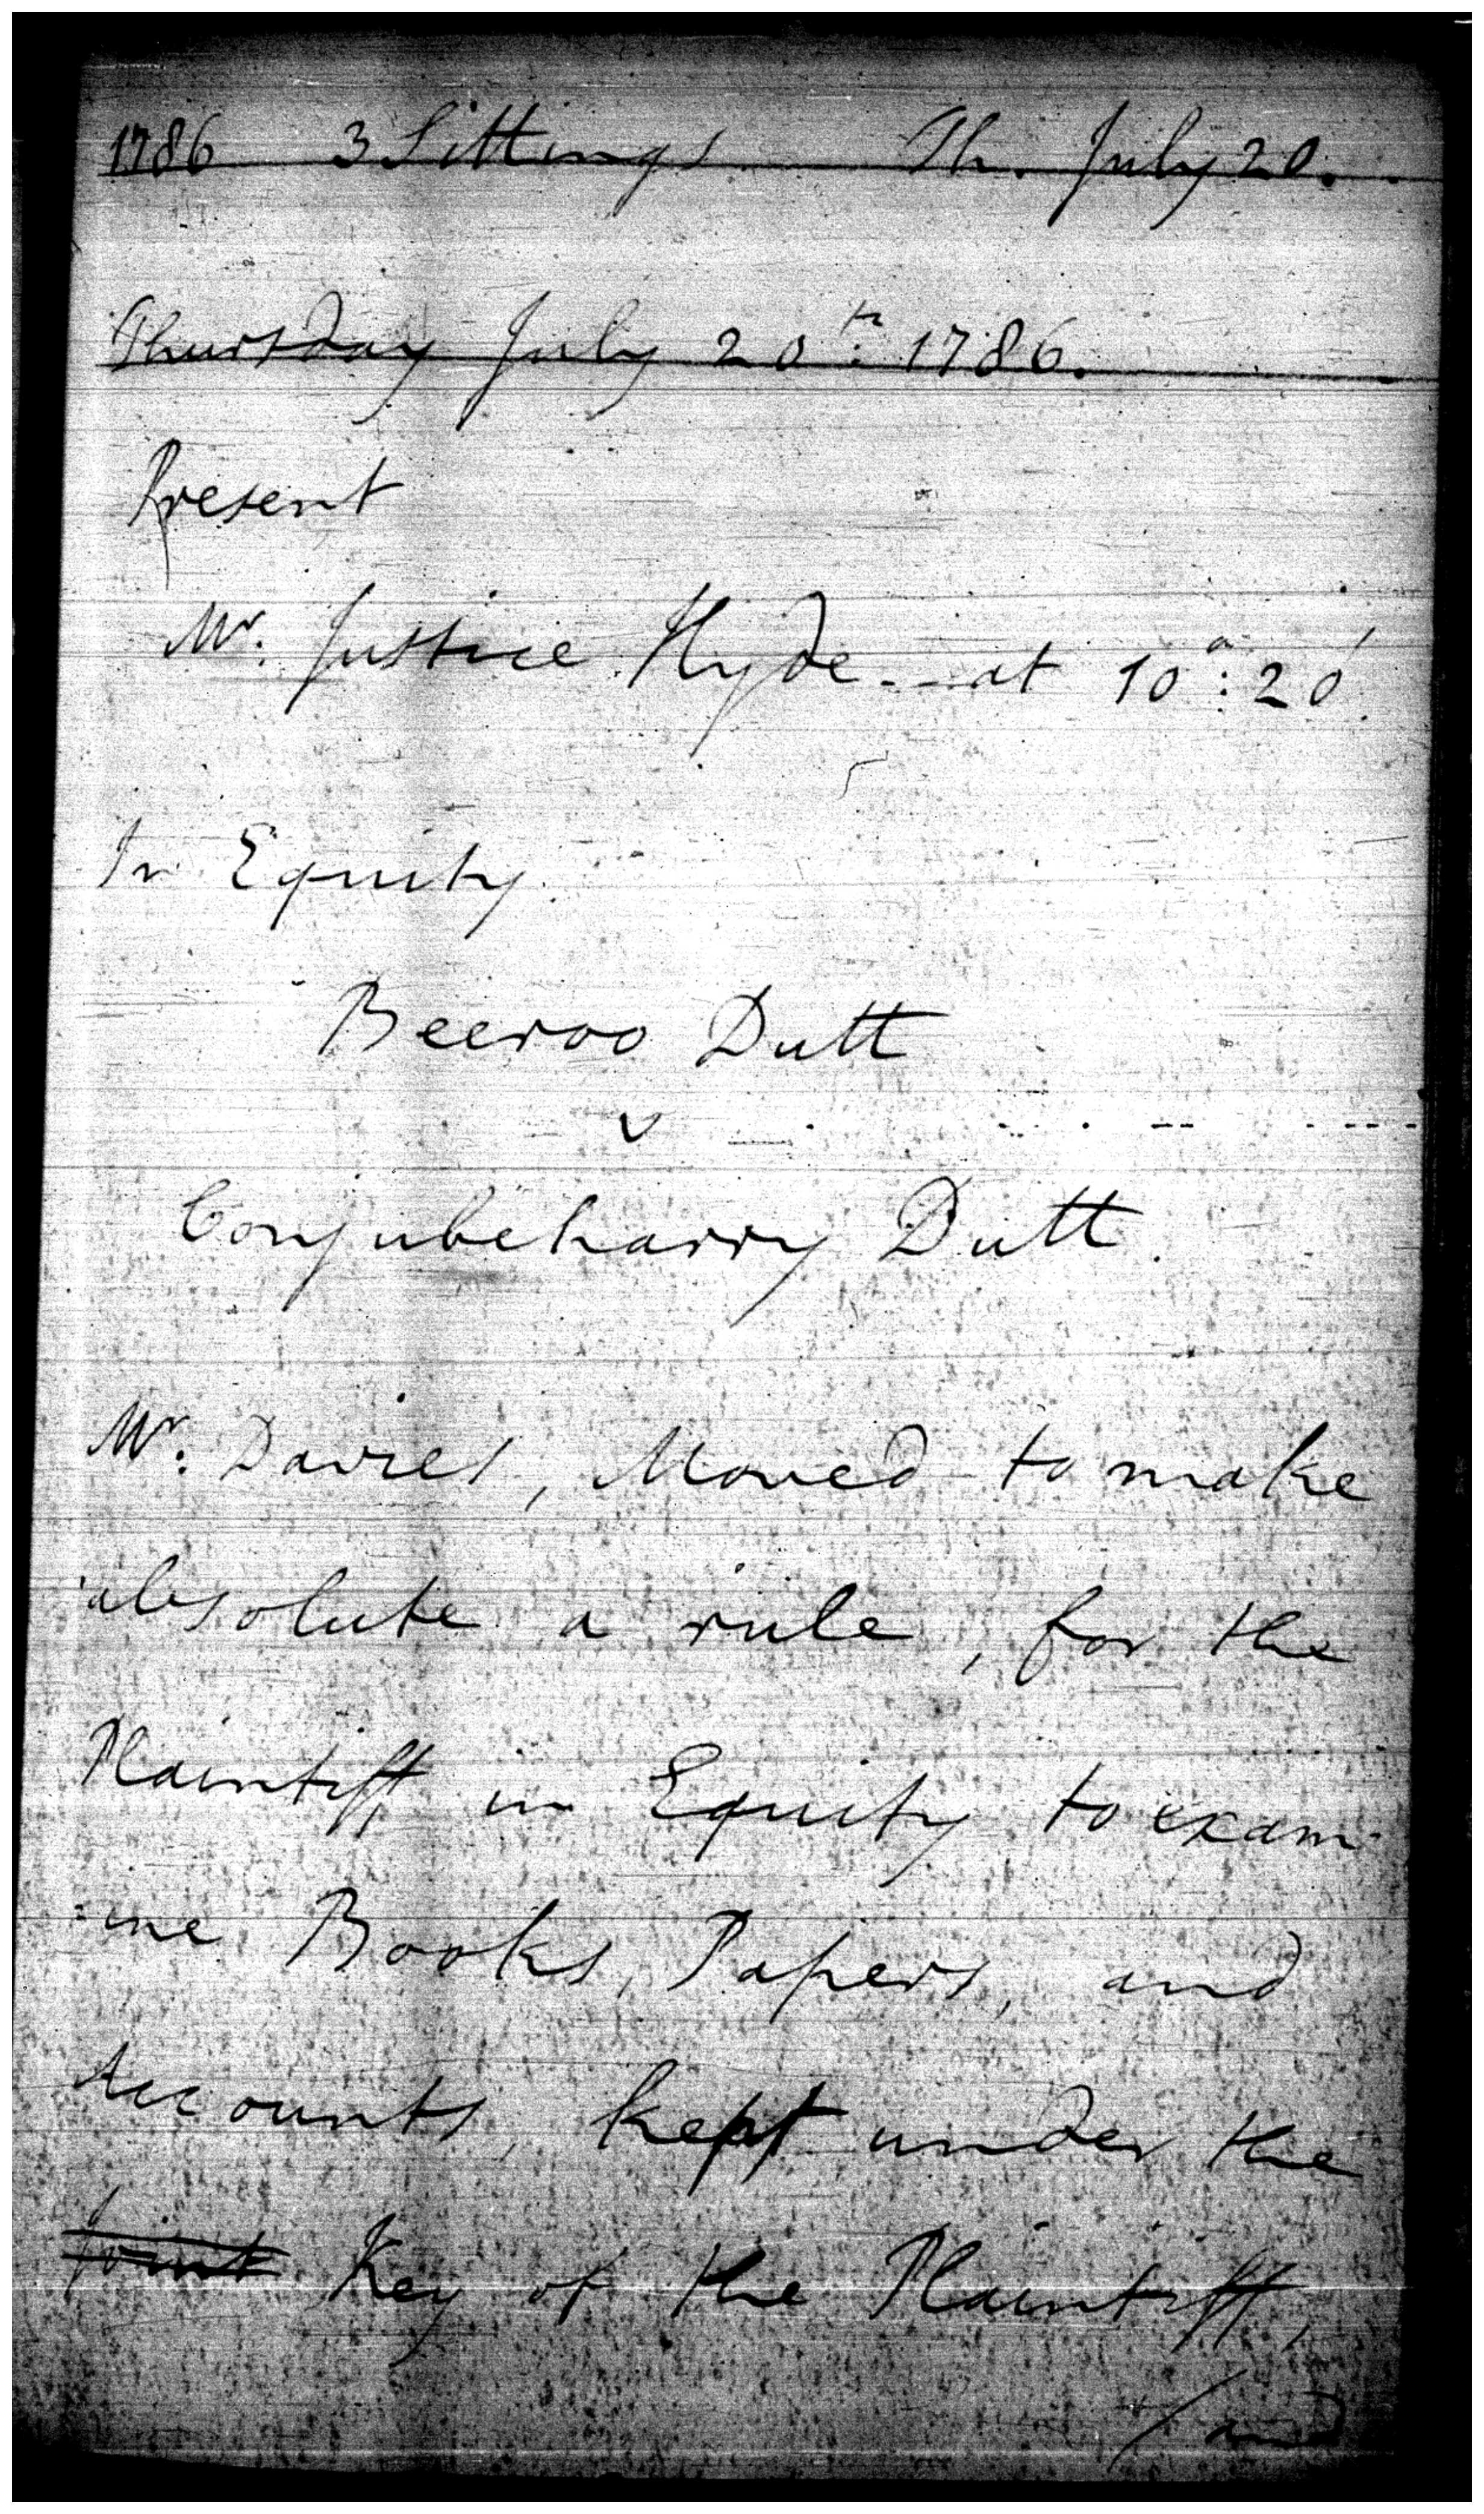 1786 3 Sittings Th. July 20.
Thursday July 20th: 1786.
Present
Mr. Justice Hyde at 10: 20'
In Equity.
Beeroo Dutt
v
Conjubeharry Dutt.
Mr. Davies, Moved to make
absolute a rule, for the
Plaintiff in Equity to exam-
:ine Books, Papers, and
Accounts, kept under the
Joint Key of the Plaintiff,
/and